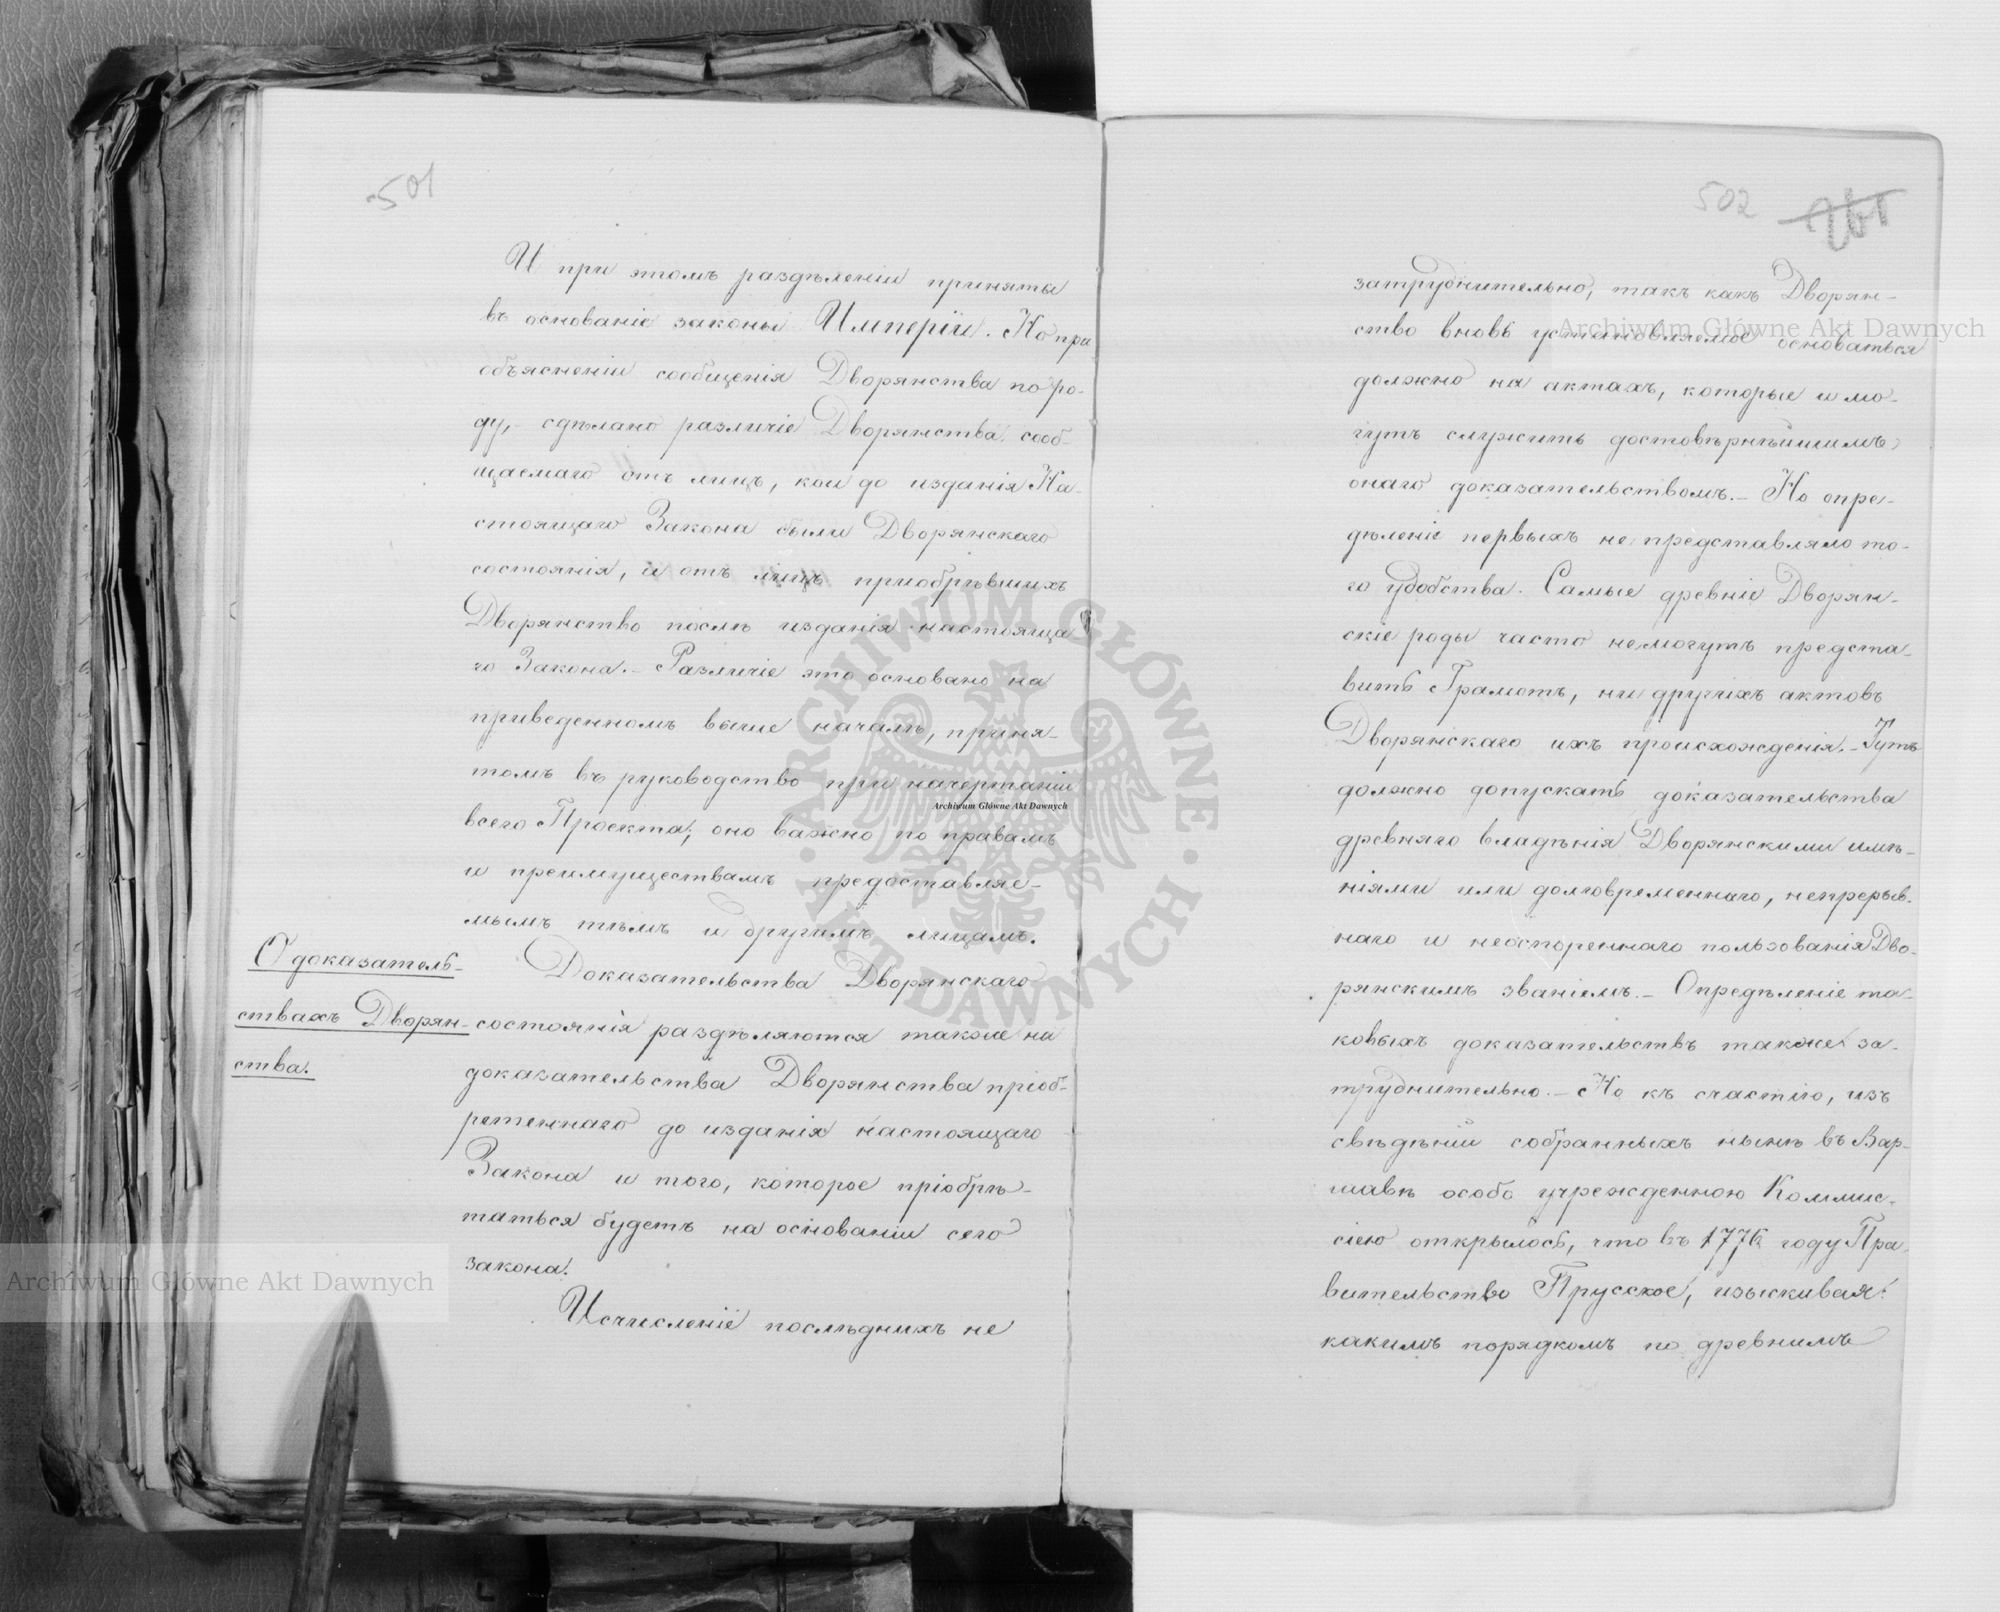 501
И при этомъ раздѣленіи приняты
въ основаніе законы Имперіи. Но при
объясненіи сообщенія Дворянства по ро-
ду,- сдѣлано различіе Дворянства, сооб-
щаемаго отъ лицъ, кои до изданія На-
стоящаго Закона были Дворянскаго
состоянія, и отъ лицъ приобрѣвшихъ
Дворянство послѣ изданія настояща
го Закона.- Различіе это основано на
приведенномъ выше началѣ, приня-
томъ въ руководство при начертаніи
всего Проекта; оно важно по правамъ
и преимуществамъ предоставляе-
мымъ тѣмъ и другимъ лицамъ.
О доказатель-
ствахъ Дворян-
ства.
Доказательства Дворянскаго
состоянія раздѣляются также на
доказательства Дворянства пріоб-
ретеннаго до изданія настоящаго
Закона и того, которое пріобрѣ-
таться будетъ на основаніи сего
закона.
Исчисленіе послѣднихъ не
502
затруднительно, такъ какъ Дворян-
ство вновь установляемое основаться
должно на актахъ, которые и мо-
гутъ служить достовѣрнѣйшимъ
онаго доказательствомъ.- Но опре-
дѣленіе первыхъ не представляло то-
го удобства. Самые древніе Дворян-
скіе роды часто немогутъ предста-
вить Грамотъ, ни другихъ актовъ
Дворянскаго ихъ происхожденія.- Тутъ
должно допускать доказательства
древняго владѣнія Дворянскими имѣ-
ніями или долговременнаго, непрерыв-
наго и неоспореннаго пользованія Дво-
рянскимъ званіемъ.- Опредѣленіе та-
ковыхъ доказательствъ также за-
труднительно.- Но къ счастію, изъ
свѣдѣній собранныхъ нынѣ въ Вар-
шавѣ особо учрежденною Коммис-
сіею открылось, что въ 1776 году Пра-
вительство Прусское, изыскивая
какимъ порядкомъ по древнимъ
Archiwum Główne Akt Dawnych
Archiwum Główne Akt Dawnych
Archiwum Główne Akt Dawnych
ARCHIWUM GŁÓWNE
AKT DAWNYCH